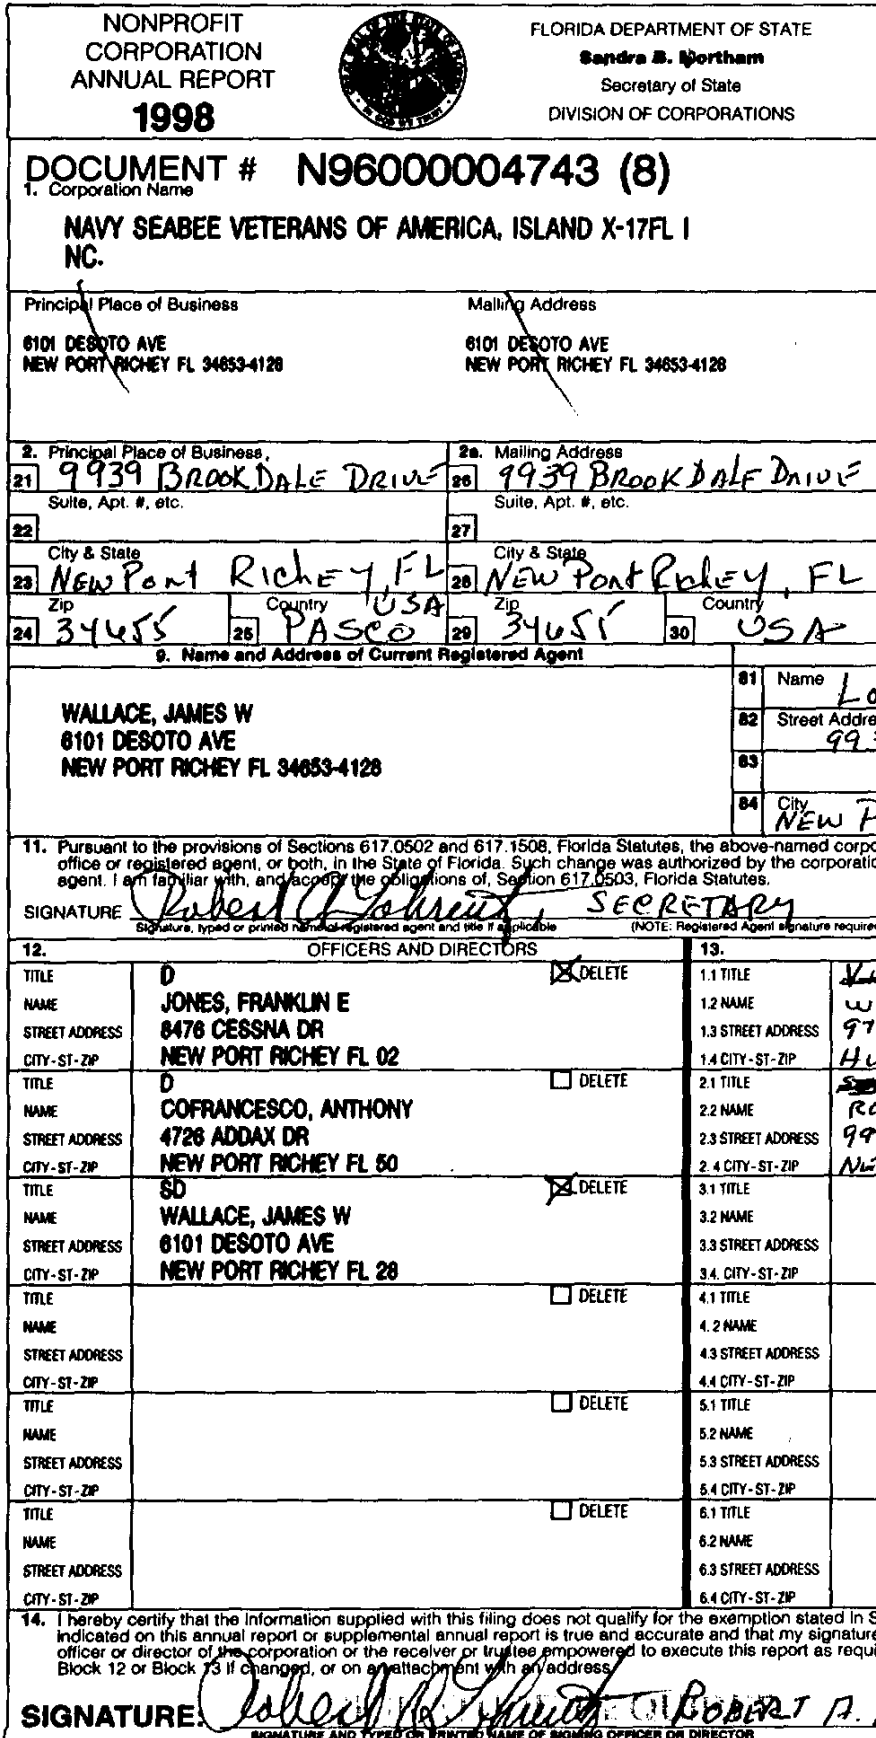 NONPROFIT
CORPORATION
ANNUAL REPORT
1998
FLORIDA DEPARTMENT OF STATE
Sandra B. Mortham
Secretary of State
DIVISION OF CORPORATIONS
DOCUMENT # N96000004743 (8)
1. Corporation Name
NAVY SEABEE VETERANS OF AMERICA, ISLAND X-17FL I
NC.
Principal Place of Business
6101 DESOTO AVE
NEW PORT RICHEY FL 34653-4128
Mailing Address
6101 DESOTO AVE
NEW PORT RICHEY FL 34653-4128
2. Principal Place of Business
21 9939 BROOKDALE DRIVE
2a. Mailing Address
26 9939 BROOKDALE DRIVE
Suite, Apt. #, etc.
22
Suite, Apt. #, etc.
27
City & State
23 NEW PORT RICHEY, FL
City & State
28 NEW PORT RICHEY, FL
Zip
24 34655
Country USA
25 PASCO
Zip
29 34655
Country
30 USA
9. Name and Address of Current Registered Agent
WALLACE, JAMES W
6101 DESOTO AVE
NEW PORT RICHEY FL 34653-4128
81 Name
82 Street Addre
993
83
84 City
NEW P
11. Pursuant to the provisions of Sections 617.0502 and 617.1508, Florida Statutes, the above-named corpo
office or registered agent, or both, in the State of Florida. Such change was authorized by the corporatio
agent. I am familiar with, and accept the obligations of, Section 617.0503, Florida Statutes.
SIGNATURE Robert A , SECRETARY
Signature, typed or printed name of registered agent and title if applicable (NOTE: Registered Agent signature require
12. OFFICERS AND DIRECTORS
TITLE D DELETE
NAME JONES, FRANKLIN E
STREET ADDRESS 8476 CESSNA DR
CITY-ST-ZIP NEW PORT RICHEY FL 02
TITLE D DELETE
NAME COFRANCESCO, ANTHONY
STREET ADDRESS 4726 ADDAX DR
CITY-ST-ZIP NEW PORT RICHEY FL 50
TITLE SD DELETE
NAME WALLACE, JAMES W
STREET ADDRESS 6101 DESOTO AVE
CITY-ST-ZIP NEW PORT RICHEY FL 28
TITLE DELETE
NAME
STREET ADDRESS
CITY-ST-ZIP
TITLE DELETE
NAME
STREET ADDRESS
CITY-ST-ZIP
TITLE DELETE
NAME
STREET ADDRESS
CITY-ST-ZIP
13.
1.1 TITLE
1.2 NAME W
1.3 STREET ADDRESS 97
1.4 CITY-ST-ZIP HU
2.1 TITLE
2.2 NAME RO
2.3 STREET ADDRESS 99
2.4 CITY-ST-ZIP
3.1 TITLE
3.2 NAME
3.3 STREET ADDRESS
3.4. CITY-ST-ZIP
4.1 TITLE
4.2 NAME
4.3 STREET ADDRESS
4.4 CITY-ST-ZIP
5.1 TITLE
5.2 NAME
5.3 STREET ADDRESS
5.4 CITY-ST-ZIP
6.1 TITLE
6.2 NAME
6.3 STREET ADDRESS
6.4 CITY-ST-ZIP
14. I hereby certify that the information supplied with this filing does not qualify for the exemption stated in S
indicated on this annual report or supplemental annual report is true and accurate and that my signature
officer or director of the corporation or the receiver or trustee empowered to execute this report as requi
Block 12 or Block 13 if changed, or on an attachment with an address
SIGNATURE: Robert A ROBERT A.
SIGNATURE AND TYPED OR PRINTED NAME OF SIGNING OFFICER OR DIRECTOR